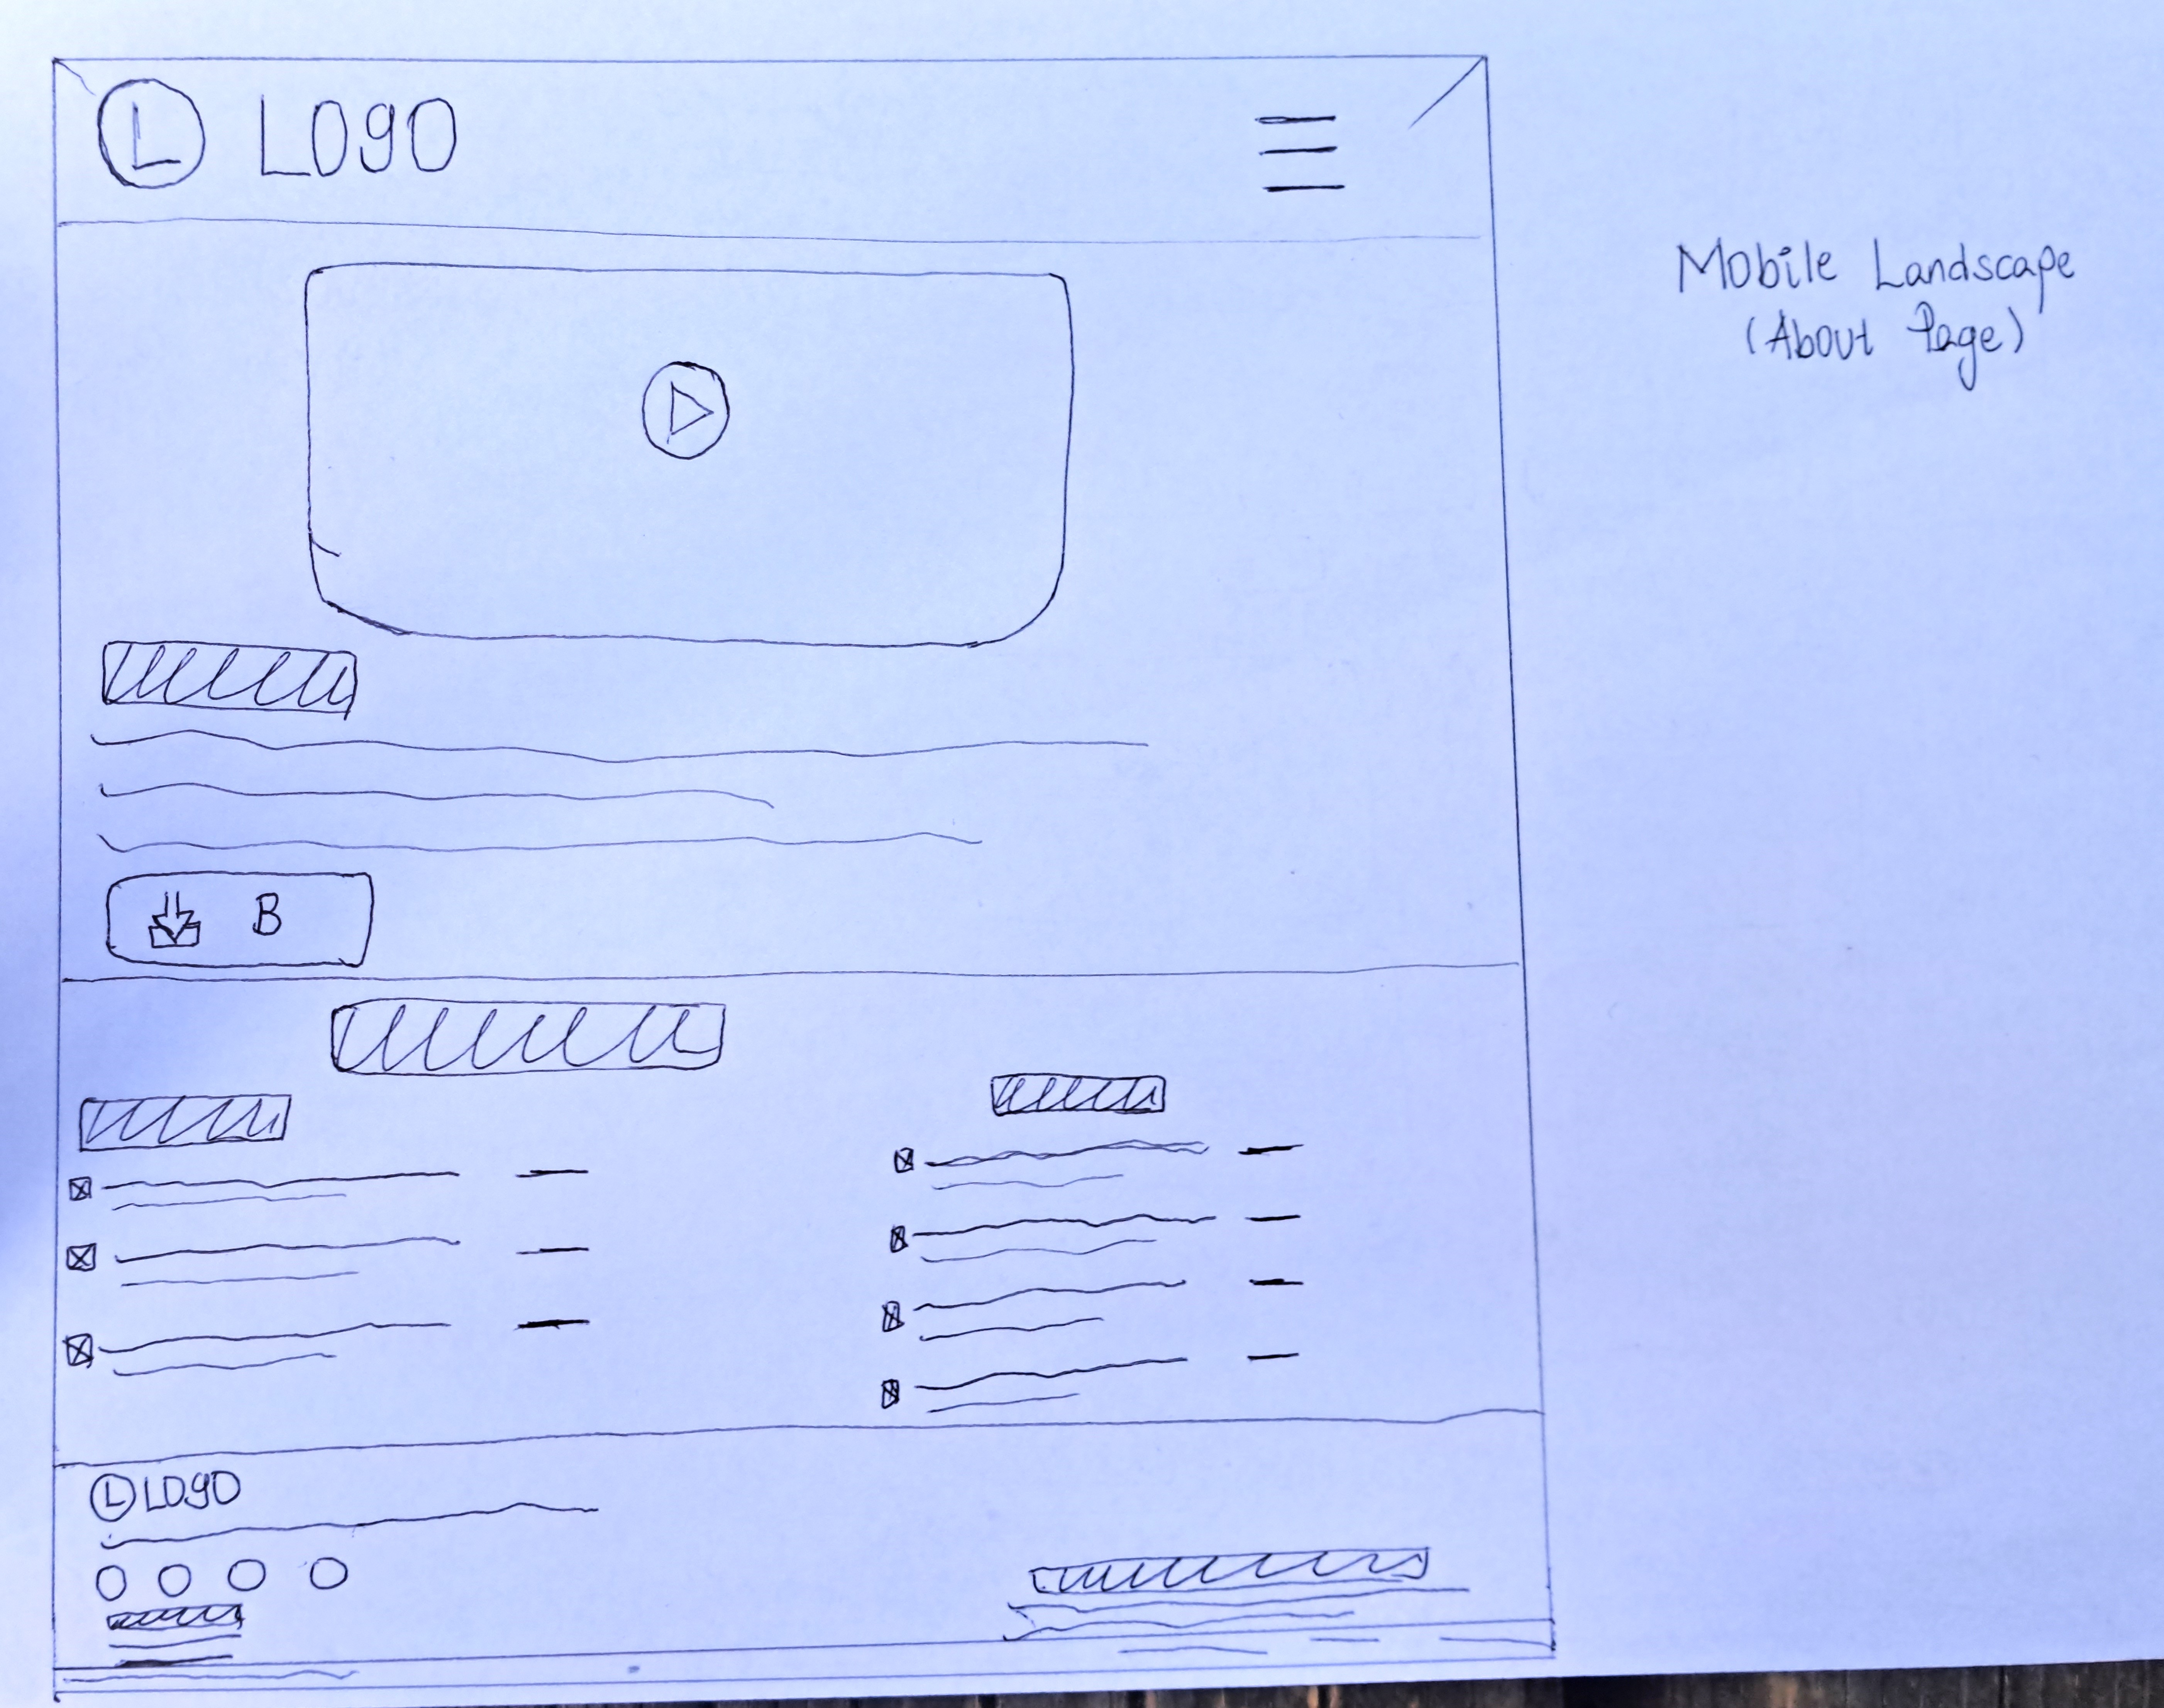 L LOgO
Mobile Landscape
(About Page)
B
L LOgO